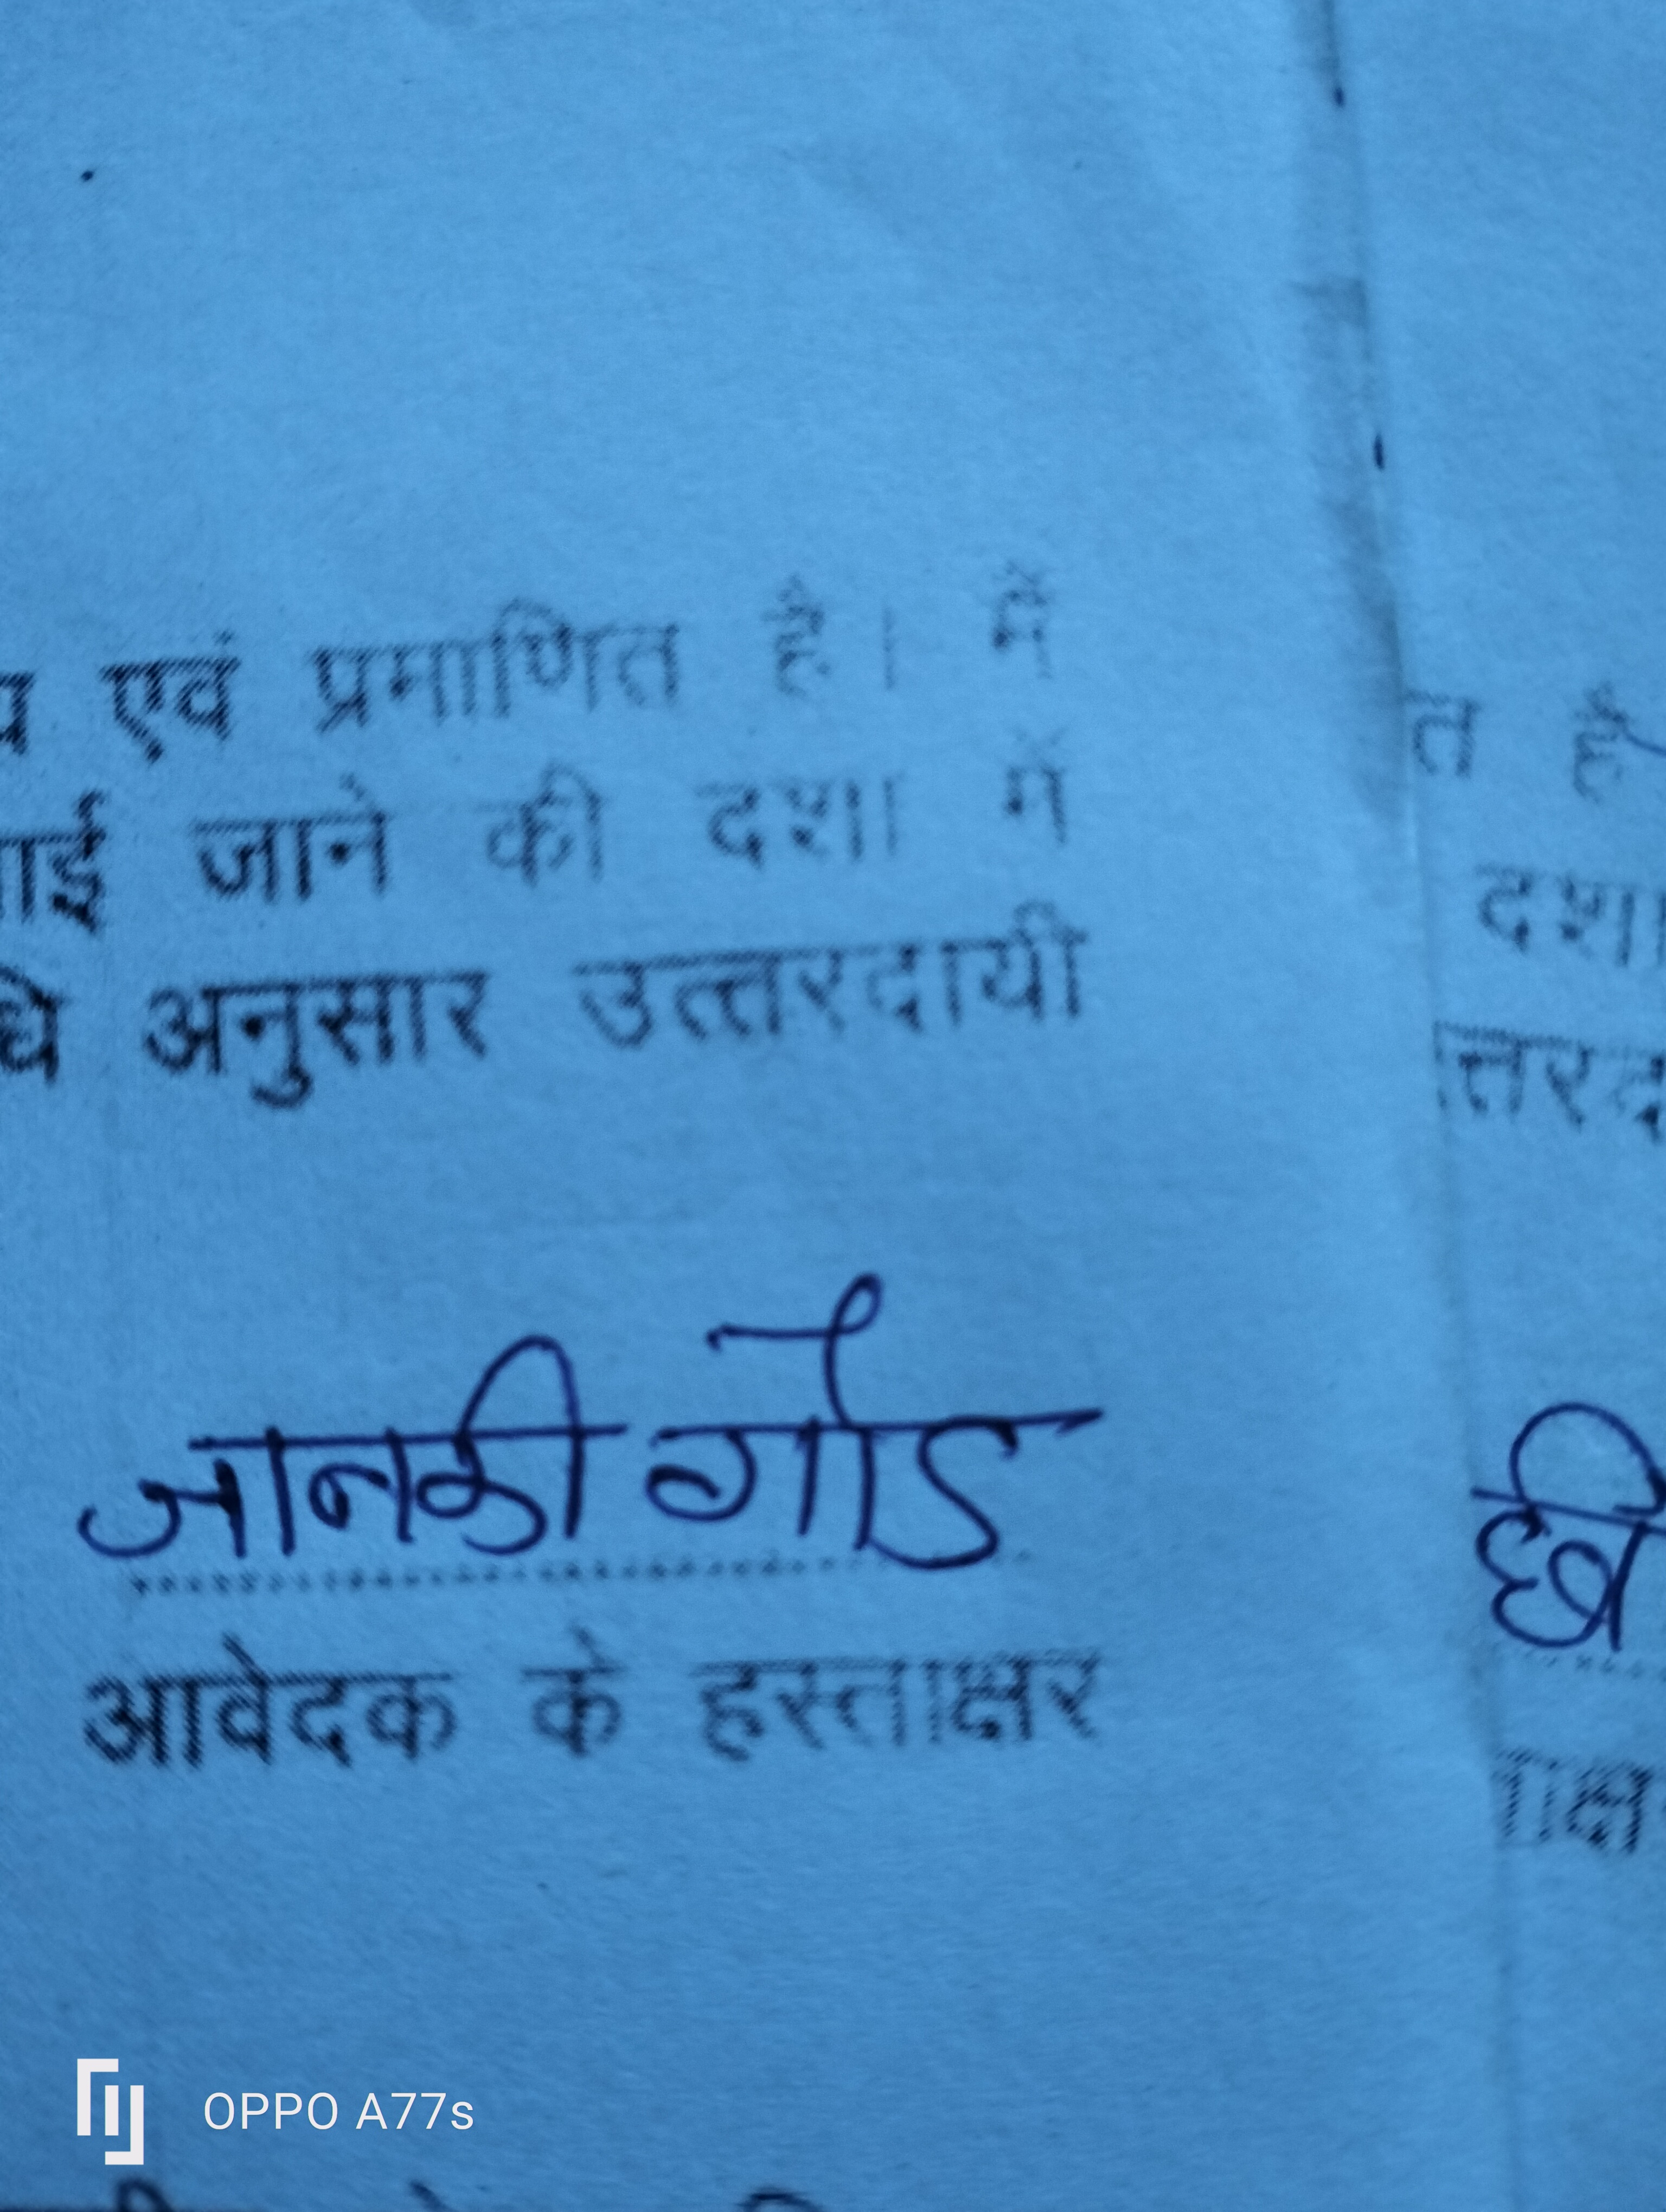 एवं प्रमाणित है। में
जाने की दशा में
अनुसार उत्तरदायी
जानकी गौड
आवेदक के हस्ताक्षर
है
दशा
OPPO A77s